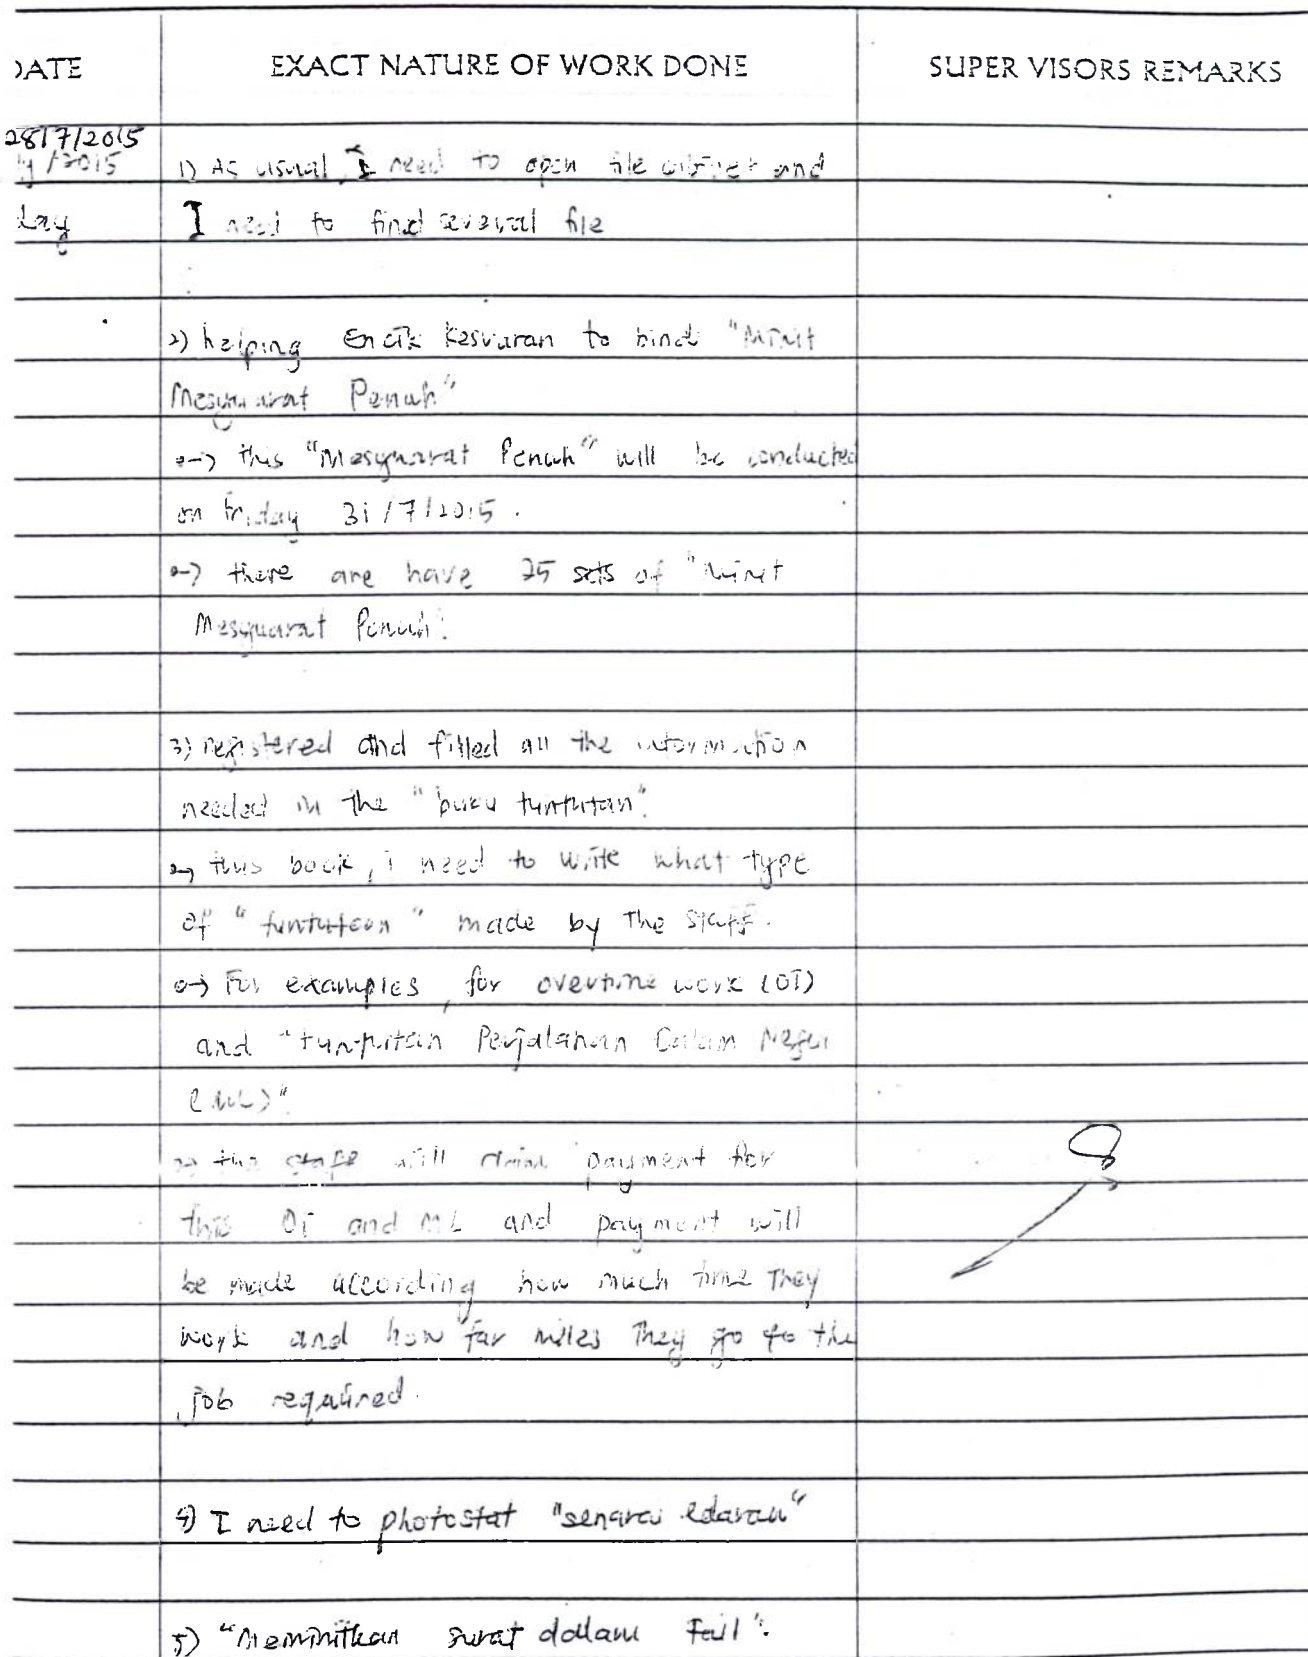 DATE EXACT NATURE OF WORK DONE SUPER VISORS REMARKS
28/7/2015
/2015 1) As usual, I need to open file and
day I need to find several file
2) helping Encik Kesvaran to bind "Minit
Mesyuarat Penuh"
→ this "Mesyuarat Penuh" will be conducted
on Friday 31/7/2015.
→ there are have 25 sets of "Minit
Mesyuarat Penuh".
3) registered and filled all the information
needed in the "buku tuntutan".
→ this book, i need to write what type
of "tuntutan" made by the staff.
→ For examples, for overtime work (OT)
and "tuntutan Perjalanan Dalam Negeri
(ML)".
→ the staff will claim payment for
this OT and ML and payment will
be made according how much time they
work and how far miles they go to the
job required.
4) I need to photostat "senarai edaran"
5) "Meminitkan surat dalam Fail".